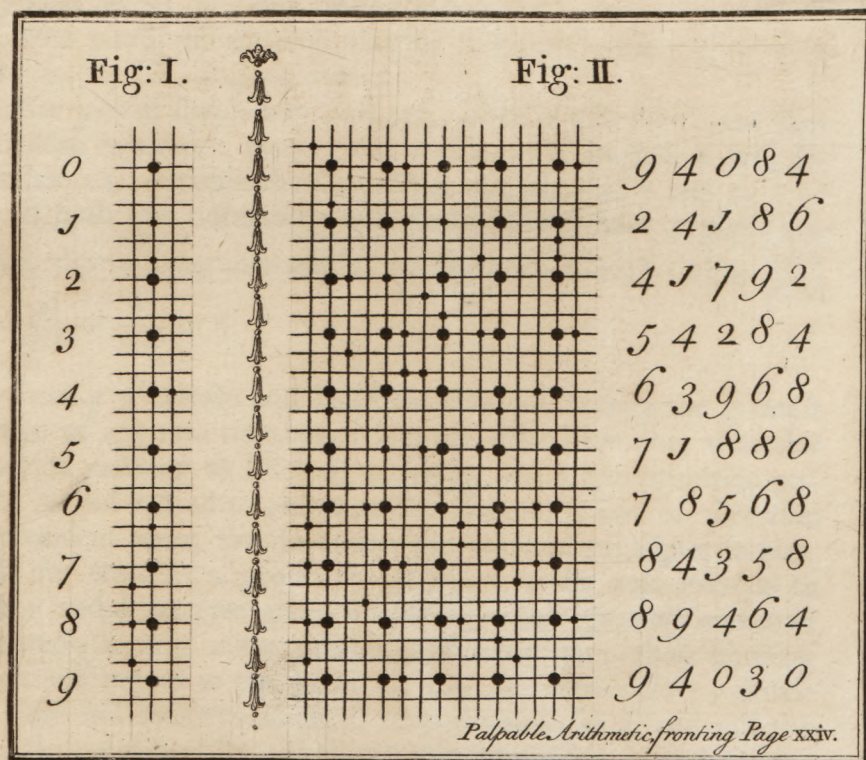 Fig: I.
Fig: II.
0
1
2
3
4
5
6
7
8
9
9 4 0 8 4
2 4 1 8 6
4 1 7 9 2
5 4 2 8 4
6 3 9 6 8
7 1 8 8 0
7 8 5 6 8
8 4 3 5 8
8 9 4 6 4
9 4 0 3 0
Palpable Arithmetic, fronting Page xxiv.